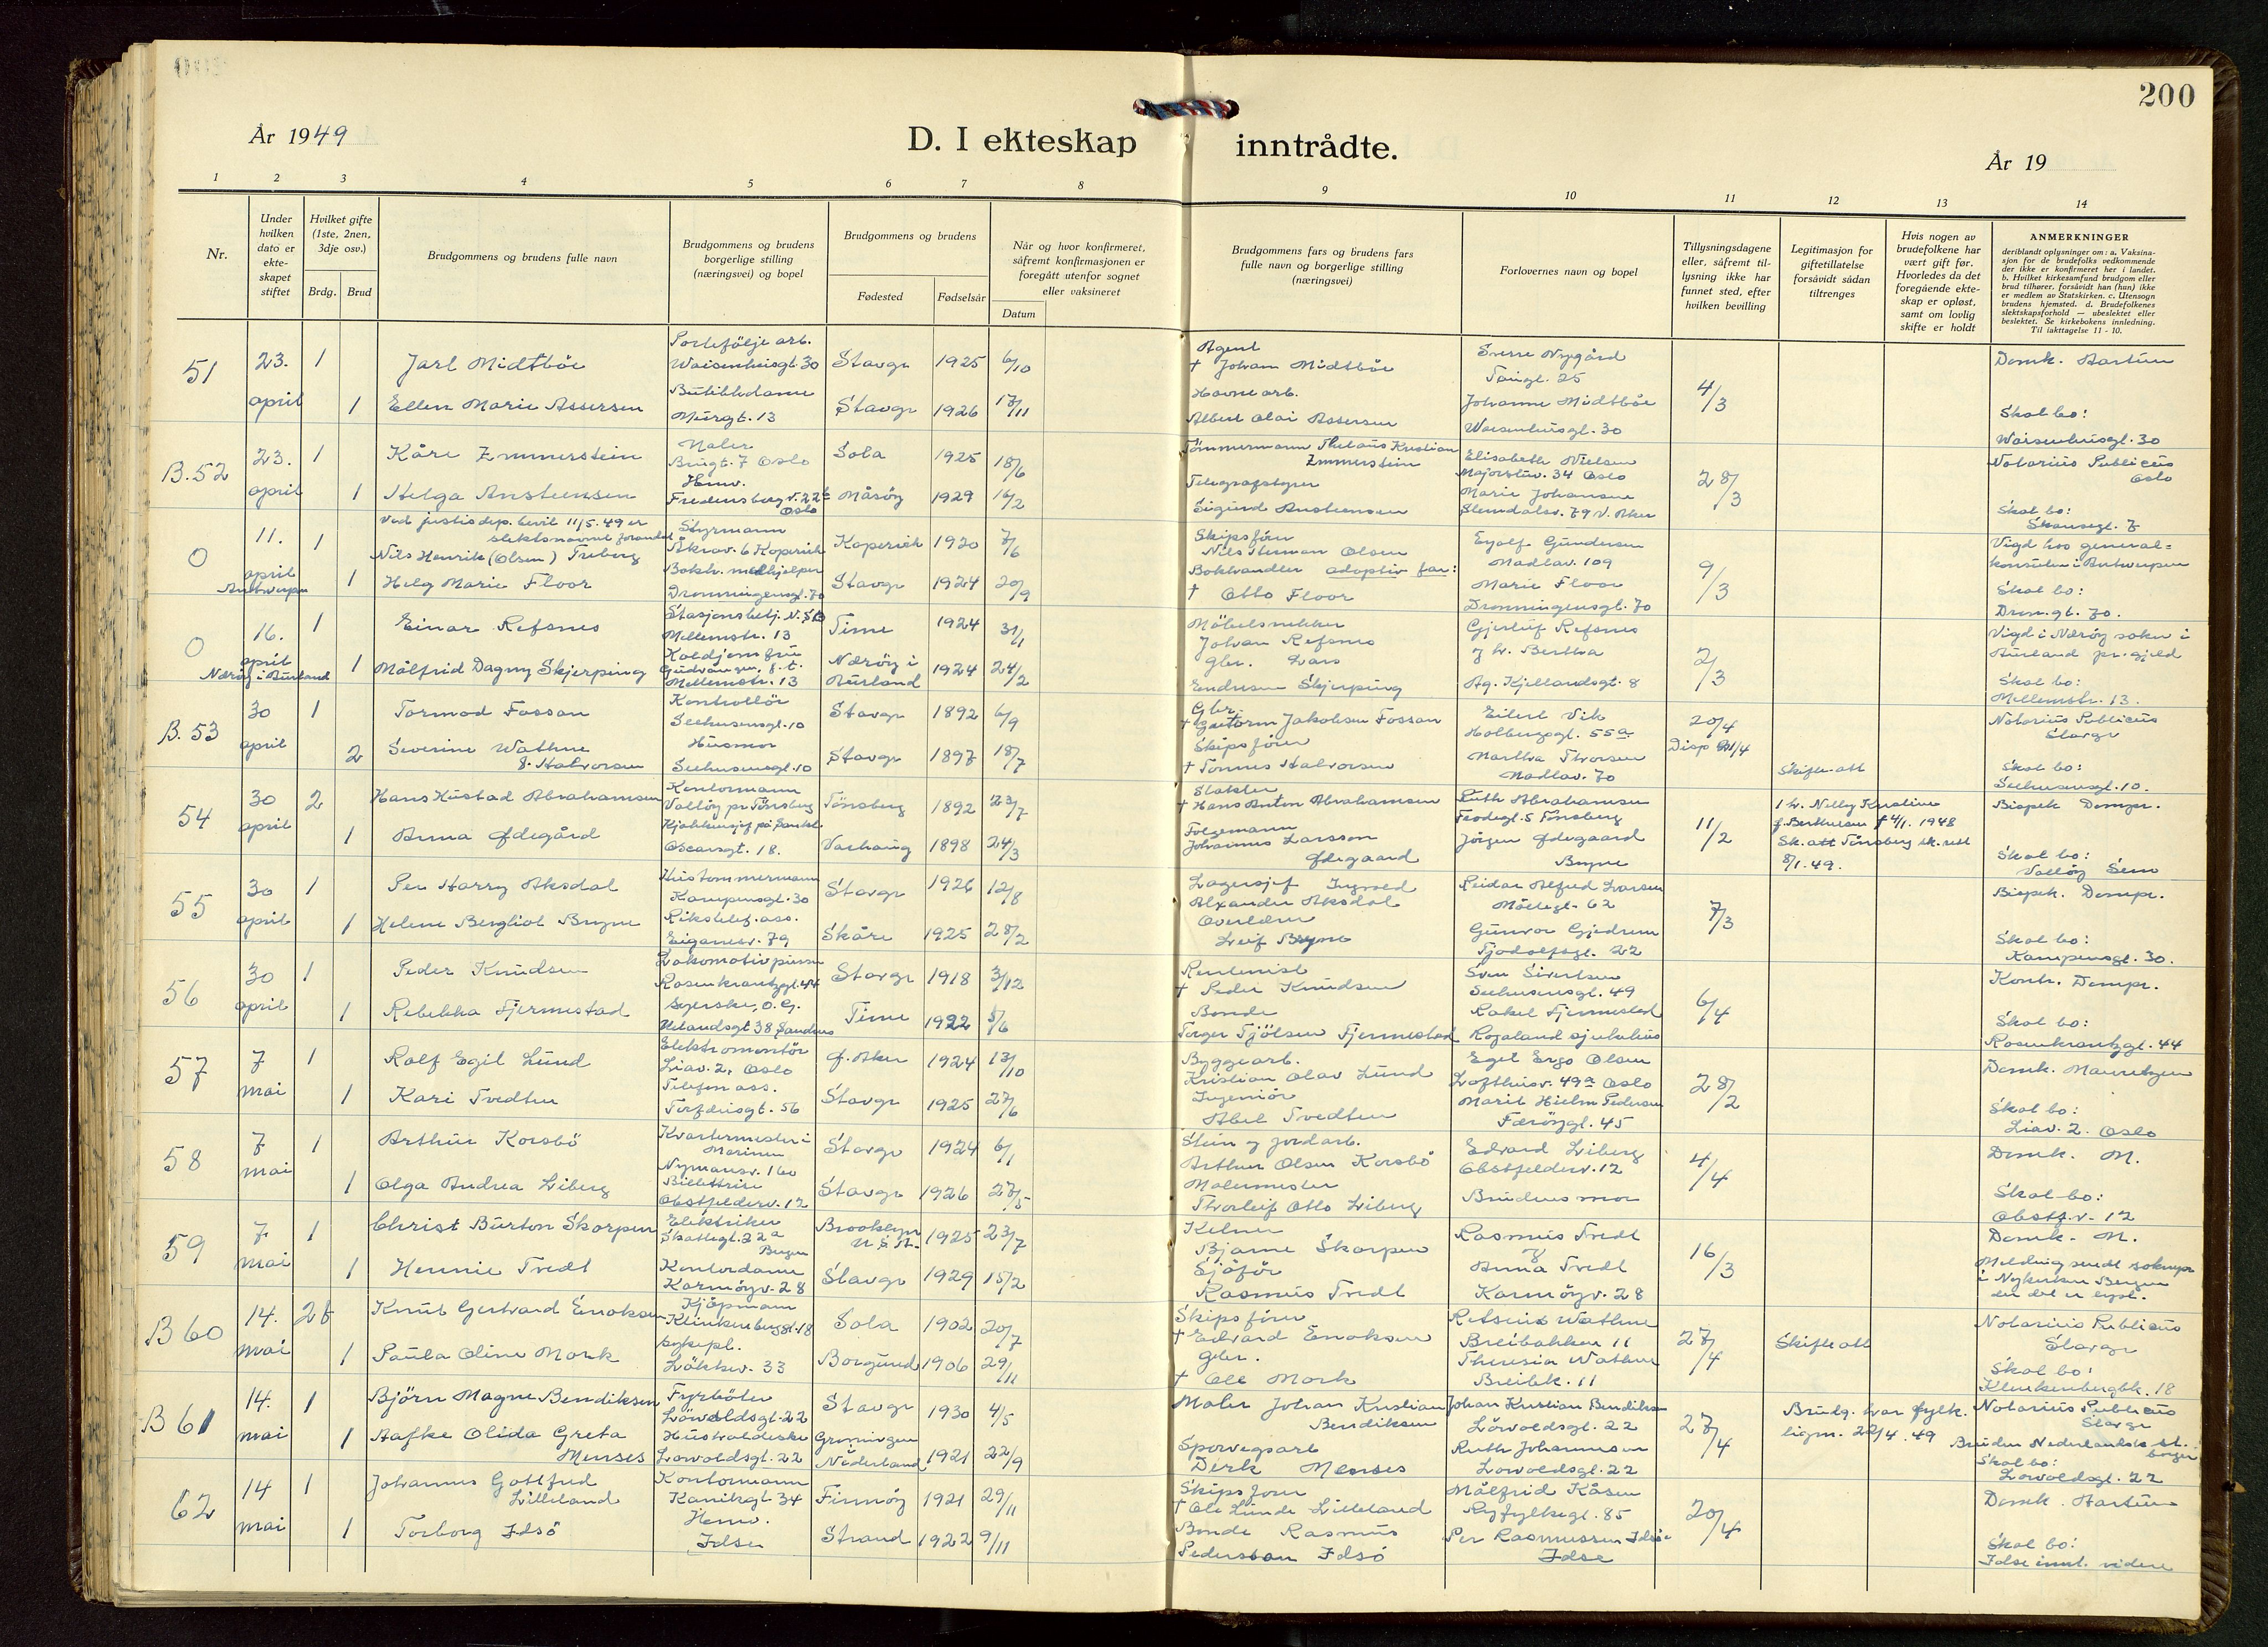 200
År 1949
D. I ekteskap inntrådte.
År 19
1 2 3 4 5 6 7 8 9 10 11 12 13 14
Nr.
Under hvilken dato er ekte-skapet stiftet
Hvilket gifte (1ste, 2nen, 3dje osv.)
Brdg. Brud
Brudgommens og brudens fulle navn
Brudgommens og brudens borgerlige stilling (næringsvei) og bopel
Brudgommens og brudens
Fødested Fødselsår
Når og hvor konfirmeret, såfremt konfirmasjonen er foregått utenfor sognet eller vaksineret
Datum
Brudgommens fars og brudens fars fulle navn og borgerlige stilling (næringsvei)
Forlovernes navn og bopel
Tillysningsdagene eller, såfremt til-lysning ikke har funnet sted, efter hvilken bevilling
Legitimasjon for giftetillatelse forsåvidt sådan tiltrenges
Hvis nogen av brudefolkene har vært gift før. Hvorledes da det foregående ekte-skap er opløst, samt om lovlig skifte er holdt
ANMERKNINGER
deriblandt oplysninger om: a. Vaksina-sjon for de brudefolks vedkommende der ikke er konfirmeret her i landet. b. Hvilket kirkesamfund brudgom eller brud tilhører, forsåvidt han (hun) ikke er medlem av Statskirken. c. Utensogn brudens hjemsted. d. Brudefolkenes slektskapsforhold — ubeslektet eller beslektet. Se kirkebokens innledning. Til iakttagelse 11 - 10.
51 23. april 1 Jarl Midtböe Portefölje arb. Waisenhusgt. 30 Stavgr 1925 6/10 Agent † Johan Midtböe Sverre Nygård 4/3 Domk. Aartun
1 Ellen Marie Assersen Murgt. 13 Stavgr 1926 Havne arb. Albert Olai Assersen Johanne Midtböe Waisenhusgt. 30 Skal bo: Waisenhusgt. 30
B. 52 23. april 1 Kåre Emmerstein Maler Oslo Sola 1925 18/6 Tömmermann Kristian Emmerstein Elisabeth Nielsen Majorstuv. 34 Oslo 28/3 Notarius Publicus Oslo
1 Helga Ansteensen Fredensborgv. 22 Oslo Måsöy 1929 16/2 Sigurd Ansteensen Marie Johansen Slemdalsv. 79 V. Aker Skal bo:
O 11. april Antwerpen 1 Ved justisdep. bevil 11/5. 49 er slektsnavnet forandret Nils Henrik (Olsen) Treberg Styrmann Åkrav. 6 Kopervik Kopervik 1920 7/6 Skipsförer Nils Herman Olsen Eyolf Gundersen Madlav. 109 9/3 Vigd hos general-konsulen i Antwerpen
1 Helg Marie Floor Bokh. medhjelper Dronningensgt. 70 Stavgr 1924 20/9 Bokhandler adoptiv far: † Otto Floor Marie Floor Dronningensgt. 70 Skal bo: Dron.gt. 70.
O 16. april Næröy i Aurland 1 Einar Refsnes Stasjonsbetj. N.S.B Mellemstr. 13 Time 1924 31/1 Möbelsnekker Johan Refsnes Gjertrud Refsnes 2/3 Vigd i Næröy sokn i Aurland pr.gjeld
1 Målfrid Dagny Skjerping Gudvangen, f. t. Mellemstr. 13 Næröy i Aurland 1924 24/2 gbr. Lars Endresen Skjerping Ag. Kjellandsgt. 8 Skal bo: Mellemstr. 13.
B. 53 30 april 1 Tormod Fossan Kontrollör Seehusensgt. 10 Stavgr 1892 6/9 Gbr. † Jakobsen Fossan Eilert Vik Holbergsgt. 55a 20/4 Notarius Publicus Stavgr
2 Severine Wathne f. Halvorsen Husmor Seehusensgt. 10 Stavgr 1897 18/7 Skipsförer † Tönnes Halvorsen Martha Thorsen Madlav. 70 Disp 21/4 Skifte att Skal bo: Seehusensgt. 10.
54 30 april 2 Hans Hustad Abrahamsen Kontormann Vallöy pr Tönsberg Tönsberg 1892 23/7 † Hans Anton Abrahamsen Ruth Abrahamsen Tönsberg 11/2 1 h. Nelly Kristine f. Berthelsen † 4/1. 1948 Sk. att Tönsberg sk. rett 8/1. 49. Bispek Dompr.
1 Anna Ødegård Oscarsgt. 18. Varhaug 1898 24/3 Johannes Larsson Ødegaard Jörgen Ødegaard Bryne Skal bo: Vallöy Sem
55 30 april 1 Per Harry Aksdal Hustömmermann Kampensgt. 30 Stavgr 1926 12/8 Lagersjef Ingvald Alxander Aksdal Reidar Alfred Larsen Möllegt. 62 7/3 Bispek. Dompr.
1 Helene Bergliot Bryne Rikstelef. ass. Eiganesv. 79 Skåre 1925 28/2 Overlærer Leif Bryne Gunvor Gjedrem Tjodolfsgt. 22 Skal bo: Kampensgt. 30.
56 30 april 1 Peder Knudsen Lokomotivpusser Rosenkrantzgt. 44 Stavgr 1918 3/12 Rentenist † Peder Knudsen Sven Sivertsen Seehusensgt. 49 6/4 Kontr. Dompr.
1 Rebekka Fjermestad Syerske, O. G. Helandsgt 38 Sandnes Time 1922 5/6 Bonde Torger Tjölsen Fjermestad Rakel Fjermestad Rogaland sjukehus Skal bo: Rosenkrantzgt. 44
57 7 mai 1 Rolf Egil Lund Elektromontör Liav. 2, Oslo Ø. Aker 1924 13/10 Byggearb. Kristian Olav Lund Egil Ergo Olsen Lofthusv. 49a Oslo 28/2 Domk. Mauritzen
1 Kari Tvedten Telefon ass. Torfæusgt. 56 Stavgr 1925 27/6 Ingeniör Abel Tvedten Marit Hielm Pedersen Færöygt. 45 Skal bo: Liav. 2. Oslo
58 7 mai 1 Arthur Korsbö Kvartermester i Marinen Nymansv. 160 Stavgr 1924 6/1 Stein og jordarb. Arthur Olsen Korsbö Edvard Liberg Obstfelderv. 12 4/4 Domk. M.
1 Olga Andrea Liberg Billettrise Obstfelderv. 12 Stavgr 1926 27/5 Malermester Thorleif Otto Liberg Brudens mor Skal bo: Obstf.v. 12
59 7 mai 1 Christ Burton Skorpen Elektriker Skottegt. 22a Bergen Brooklyn U.S.A. 1925 23/7 Kelner Bjarne Skorpen Rasmus Tvedt 16/3 Domk. M.
1 Hennie Tvedt Kontordame Karmöyv. 28 Stavgr 1929 15/2 Sjåför Rasmus Tvedt og Anna Tvedt Karmöyv. 28 Melding sendt soknepr i Nykirken Bergen der det er lyst.
B 60 14. mai 2 f Knut Gerhard Enoksen Kjöpmann Klinkenberggt. 18 Sola 1902 20/7 Skipsförer † Edvard Enoksen Wathne Breibakken 11 27/4 Notarius Publicus Stavgr
1 Paula Oline Mork sykepl. Lökkev. 33 Borgund 1906 29/11 gbr. † Ole Mork Theresia Wathne Breibk. 11 Skifte att Skal bo: Klinkenbergbk. 18
B 61 14. mai 1 Björn Magne Bendiksen Fyrböter Lövoldsgt. 22 Stavgr 1930 4/5 Maler Johan Kristian Bendiksen Johan Kristian Bendiksen Lövoldsgt. 22 27/4 Brudg. har fylk. ligm. 22/4. 49 Notarius Publicus Stavgr
1 Aafke Olida Greta Menses Lovoldsgt. 22 Groningen Nederland 1921 22/9 Sporvegsarb Dirk Menses Ruth Johannesen Lovoldsgt. 22 Bruden Nederlandsk st. borger Skal bo: Lovoldsgt. 22
62 14 mai 1 Johannes Gottfred Lilleland Kontormann Kanikgt 34 Finnöy 1921 29/11 Skipsförer † Ole Lunde Lilleland Målfrid Kåsen Ryfylkegt. 85 20/4 Domk. Aartun
1 Torborg Idsö Hemv. Idse Strand 1922 9/11 Bonde Rasmus Pederson Idsö Per Rasmussen Idsöe Idse Skal bo: Idse inntil videre